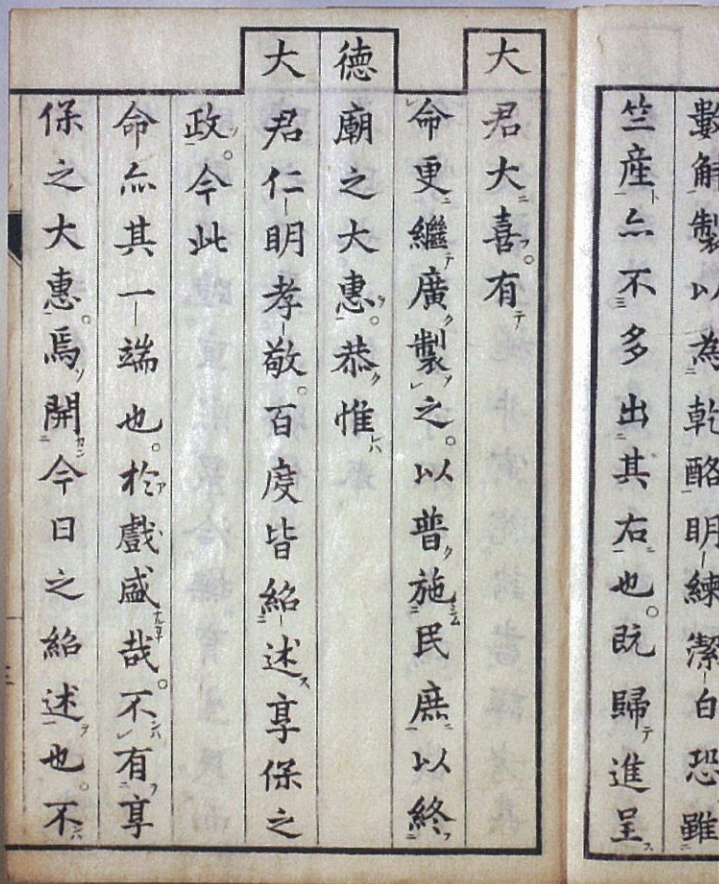 數解製以為乾酪明練潔白恐雖
竺産亦不多出其右也。既歸進呈
大君大喜。有
命更繼廣製之。以普施民庶以終
德廟之大惠。恭惟
大君仁明孝敬。百度皆紹述享保之
政。今此
命亦其一端也。於戲盛哉。不有享
保之大惠。焉開今日之紹述也。不